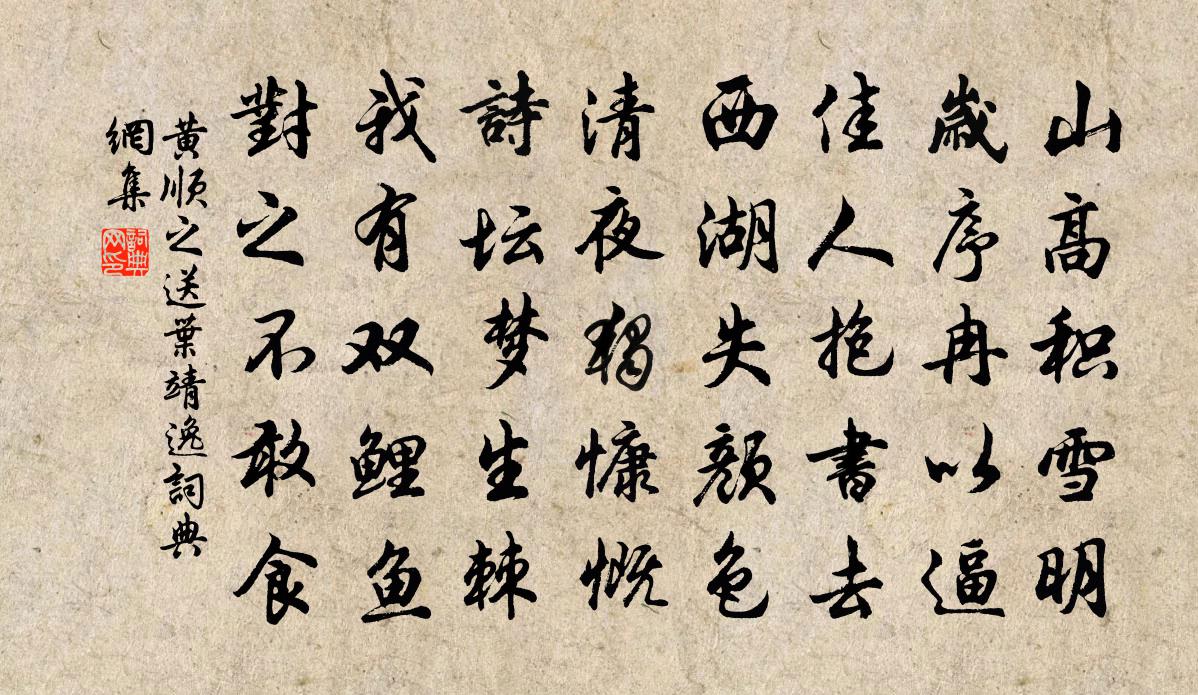 山高积雪明
歳序冉以逼
佳人抱書去
西湖失顔色
清夜独慷慨
詩坛梦生棘
我有双鲤鱼
對之不敢食
黄順之送葉靖逸詞典
網集
詞典
网印